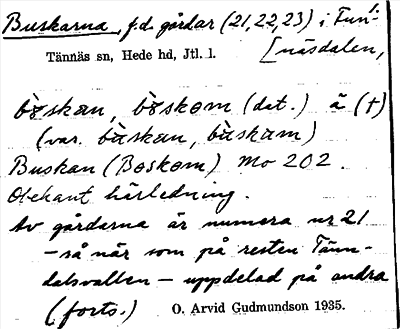 Buskarna, f.d. gårdar (21, 22, 23) i Fun-
Tännäs sn, Hede hd, Jtl. l. [näsdalen,
bòskan, bòskom (dat.) å (†)
(var. bàskan, bàskam)
Buskan (Boskom) Mo 202.
Obekant härledning.
Av gårdarna är numera nr 21
– så när som på resten Tänn-
dalsvallen – uppdelad på andra
(forts.) O. Arvid Gudmundson 1935.